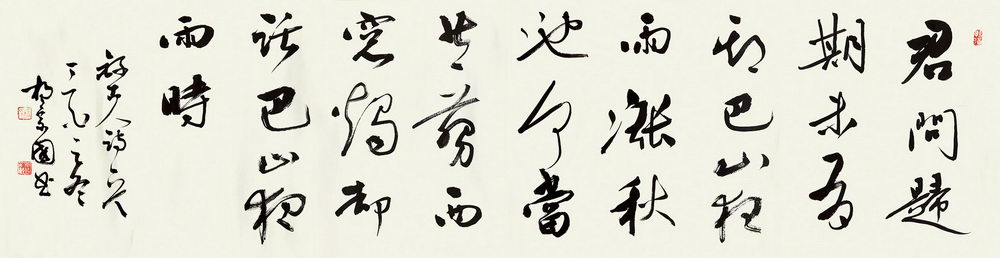 君問歸
期未有
期巴山夜
雨漲秋
池何當
共剪西
窗燭却
話巴山夜
雨時
古人詩一首
丁亥之冬
國書